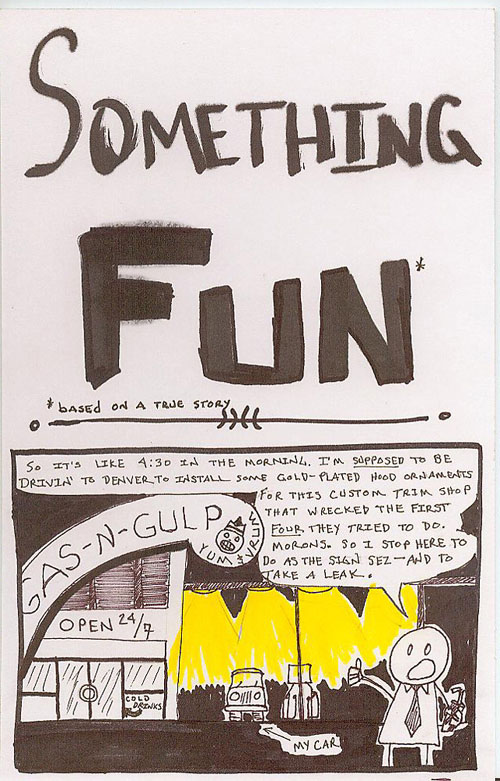 SOMETHING
FUN*
*BASED ON A TRUE STORY
SO IT'S LIKE 4:30 IN THE MORNING. I'M SUPPOSED TO BE
DRIVIN' TO DENVER TO INSTALL SOME GOLD-PLATED HOOD ORNAMENTS
FOR THIS CUSTOM TRIM SHOP
THAT WRECKED THE FIRST
FOUR THEY TRIED TO DO.
MORONS. SO I STOP HERE TO
DO AS THE SIGN SEZ—AND TO
TAKE A LEAK.
GAS-N-GULP
YUM
OPEN 24/7
COLD
DRINKS
MY CAR